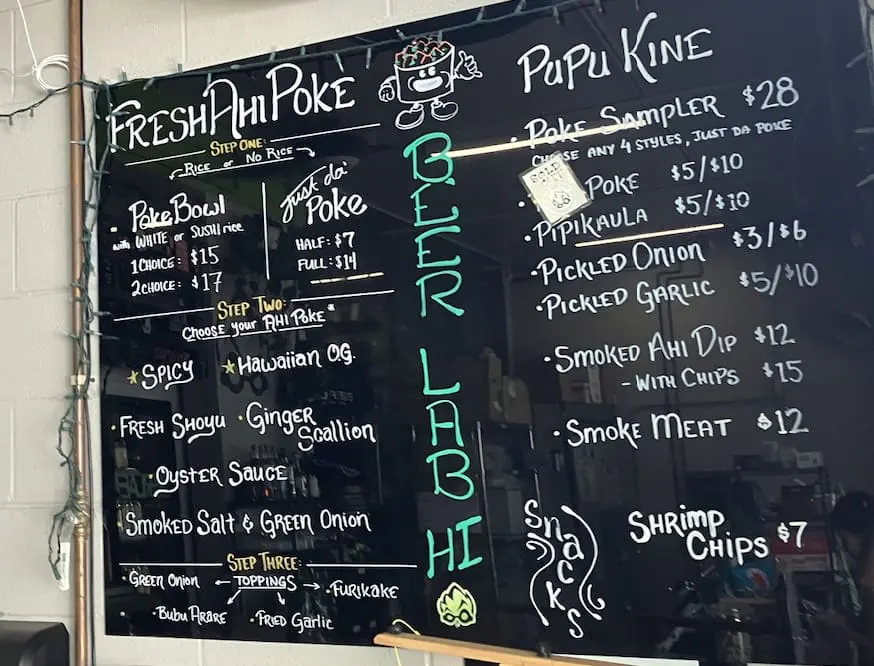 Fresh Ahi Poke
Step One:
Rice or No Rice
• Poke Bowl
with WHITE or SUSHI rice
1 CHOICE: $15
2 CHOICE: $17
Just da'
Poke
HALF: $7
FULL: $14
Step Two:
Choose your AHI Poke*
★ SPICY ★ Hawaiian O.G.
• Fresh Shoyu • Ginger
Scallion
• Oyster Sauce
• Smoked Salt & Green Onion
Step Three:
• Green Onion ← TOPPINGS → • Furikake
• Bubu Arare • Fried Garlic
BEER LAB HI
PuPu Kine
• Poke Sampler $28
CHOOSE ANY 4 STYLES, JUST DA POKE
SOLD
Poke $5/$10
• Pipikaula $5/$10
• Pickled Onion $3/$6
• Pickled Garlic $5/$10
• Smoked Ahi Dip $12
- WITH CHIPS $15
• Smoke Meat $12
Snacks
Shrimp
Chips $7